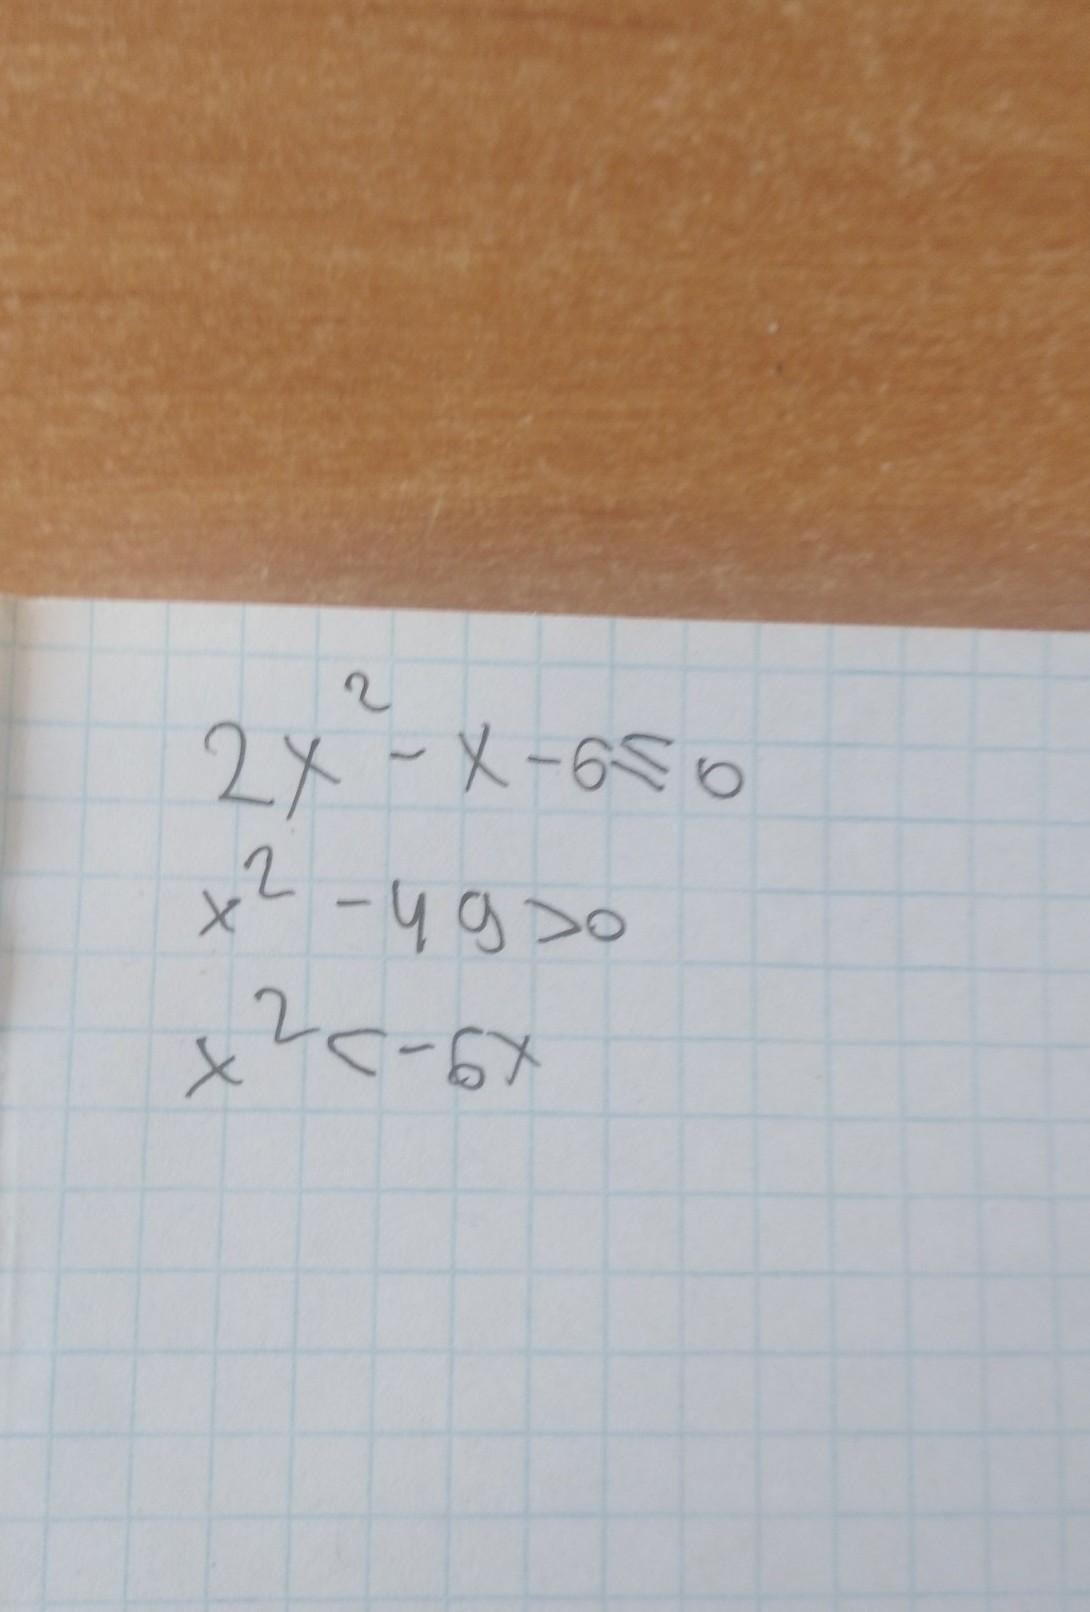 2x² - x - 6 ≤ 0
x² - 49 > 0
x² < - 6x